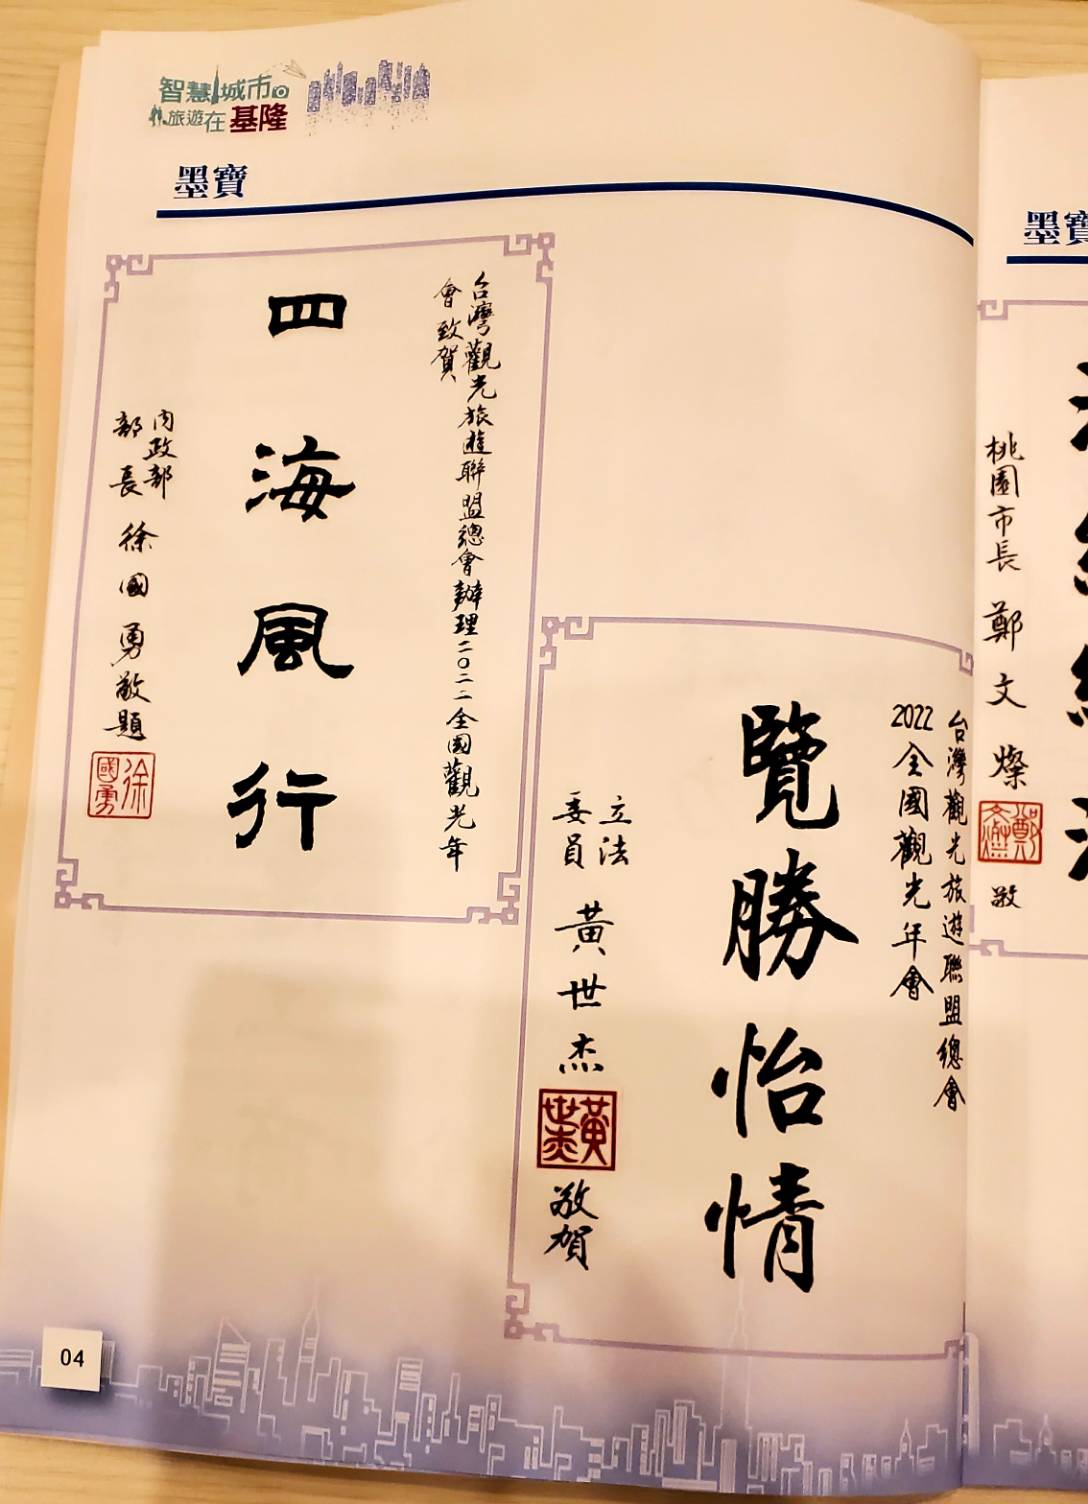 智慧城市
旅遊在基隆
墨寶
台灣觀光旅遊聯盟總會辦理二〇二二全國觀光年
會致賀
四海風行
內政部
部長
徐國勇敬題
徐國勇
台灣觀光旅遊聯盟總會
2022全國觀光年會
覽勝怡情
立法
委員
黃世杰
黃世杰
敬賀
04
墨寶
桃園市長
鄭文燦
鄭文燦
敬